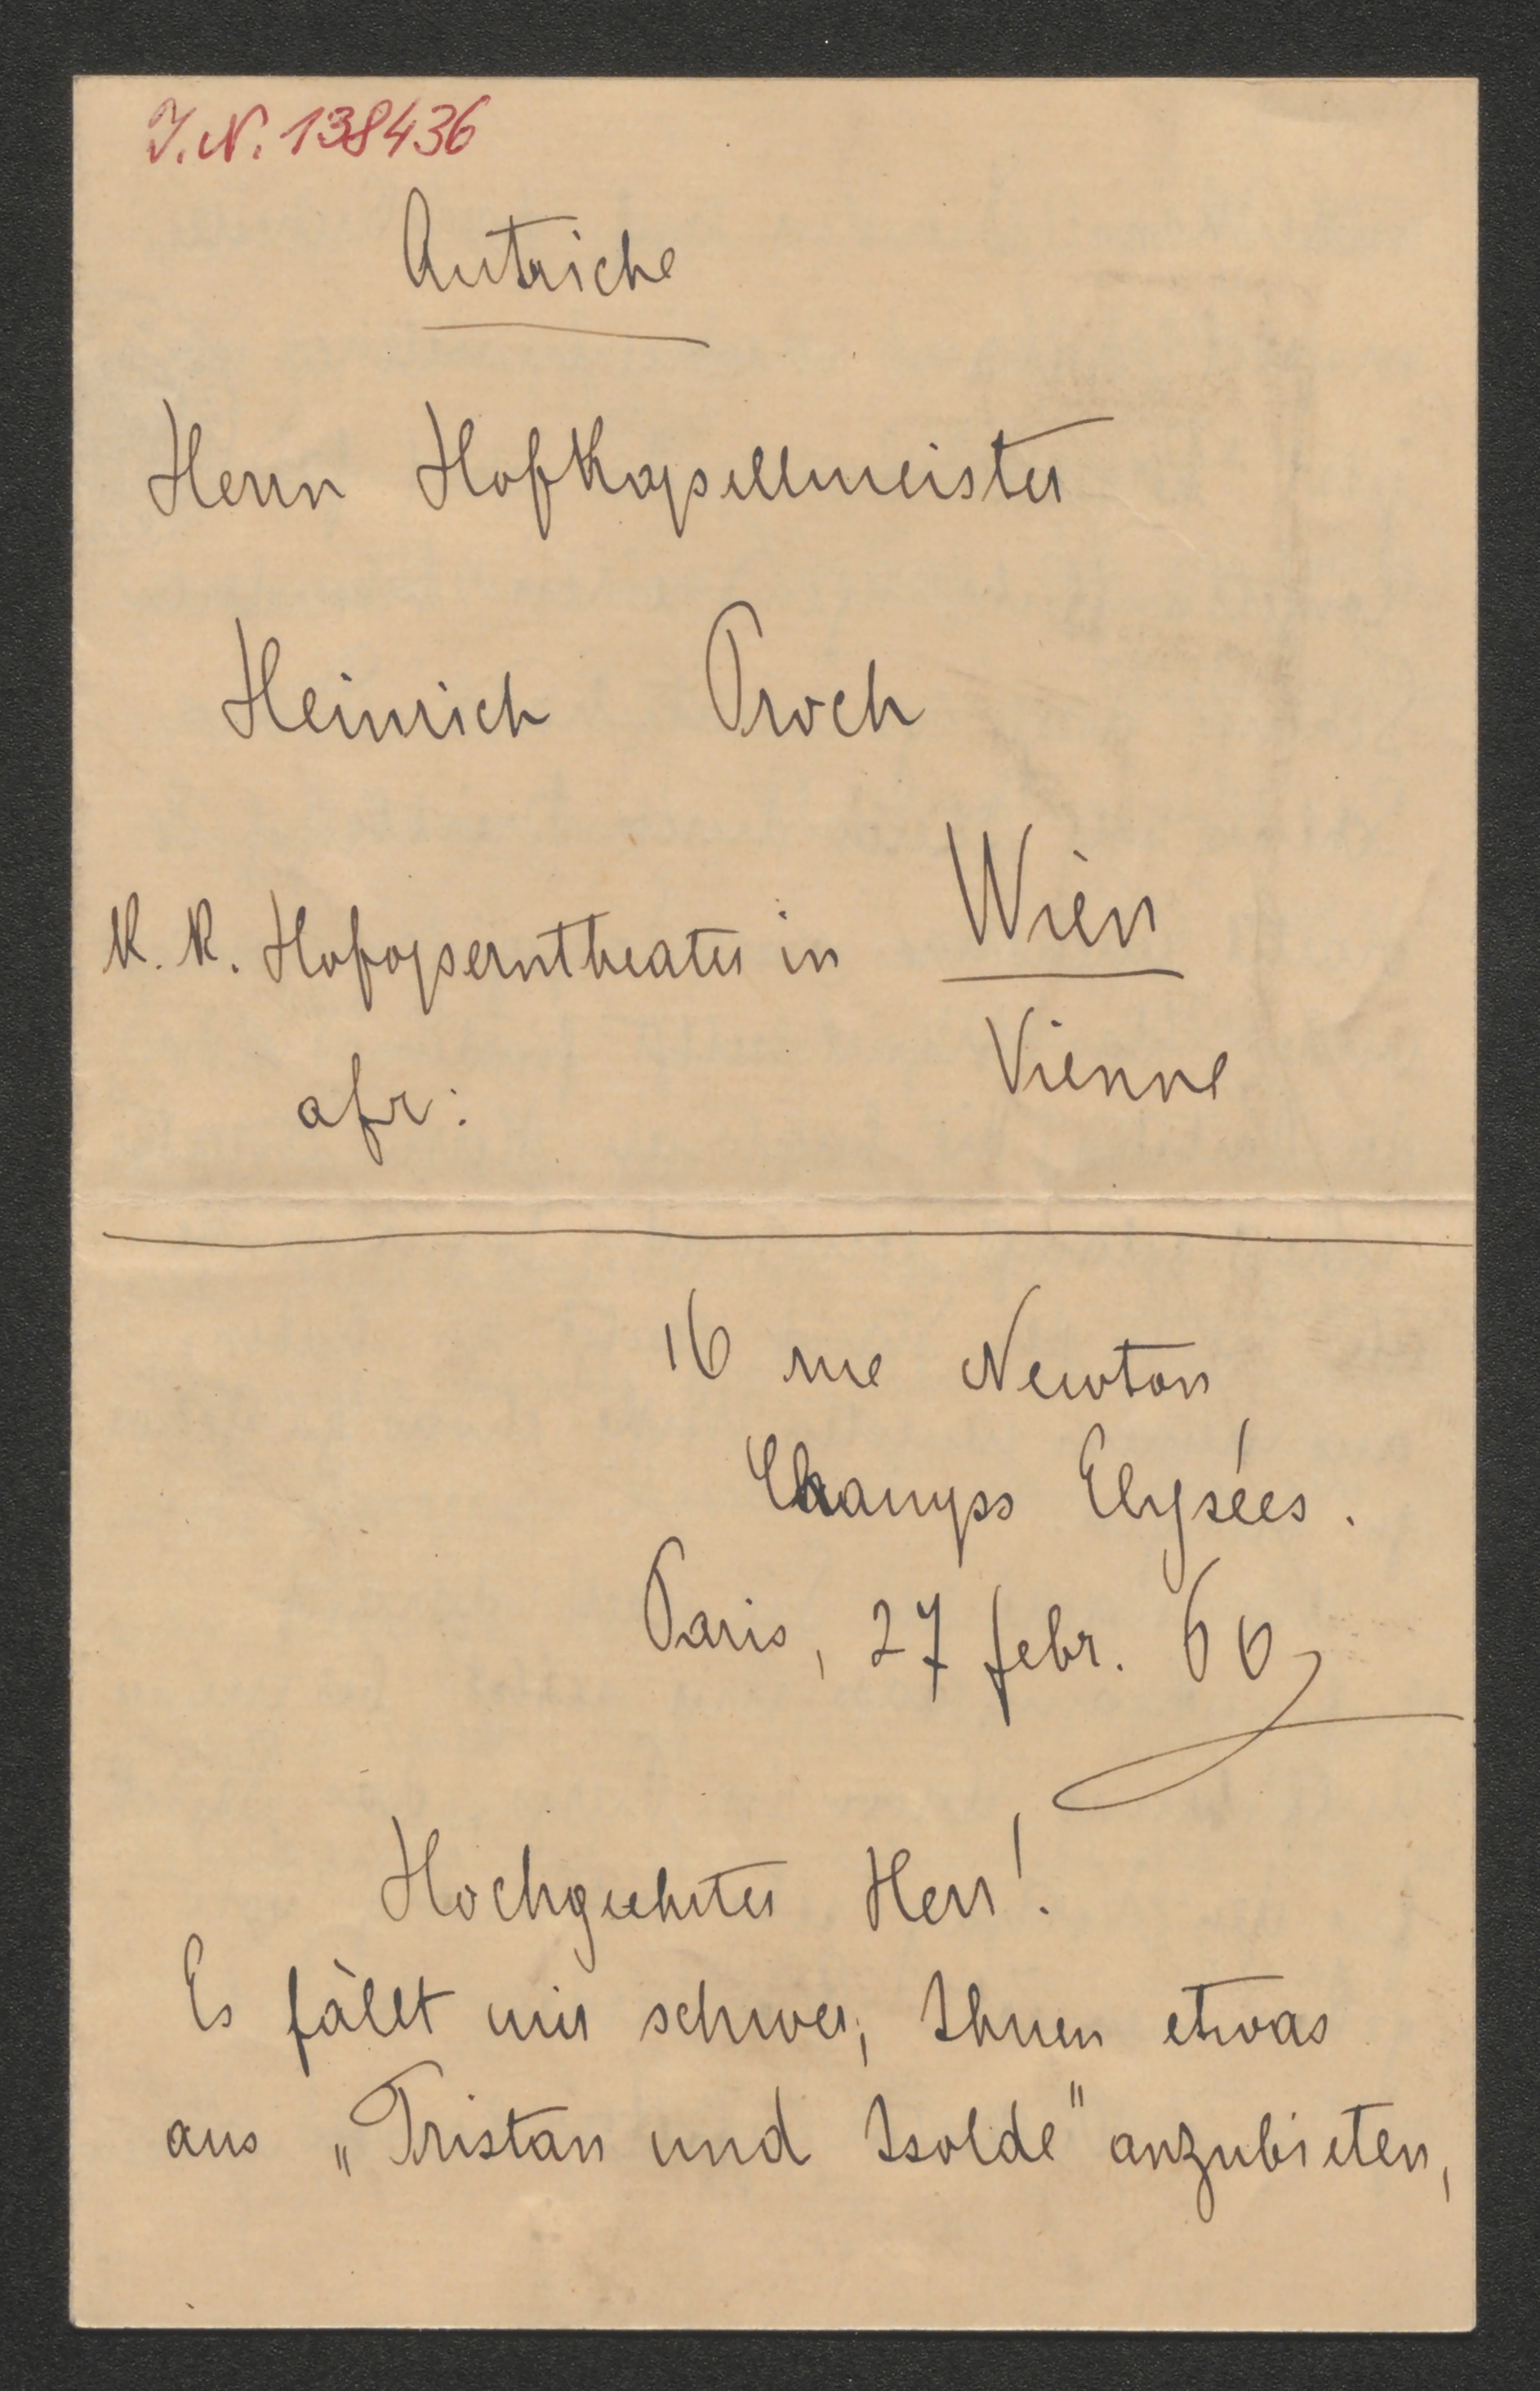 J.N. 138436
Autriche
Herrn Hofkapellmeister
Heinrich Proch
K. K. Hofoperntheater in Wien
afr: Vienne
16 rue Newton
Champs Elysées.
Paris, 27 febr. 60
Hochgeehrter Herr!
Es fällt mir schwer, Ihnen etwas
aus „Tristan und Isolde" anzubieten,